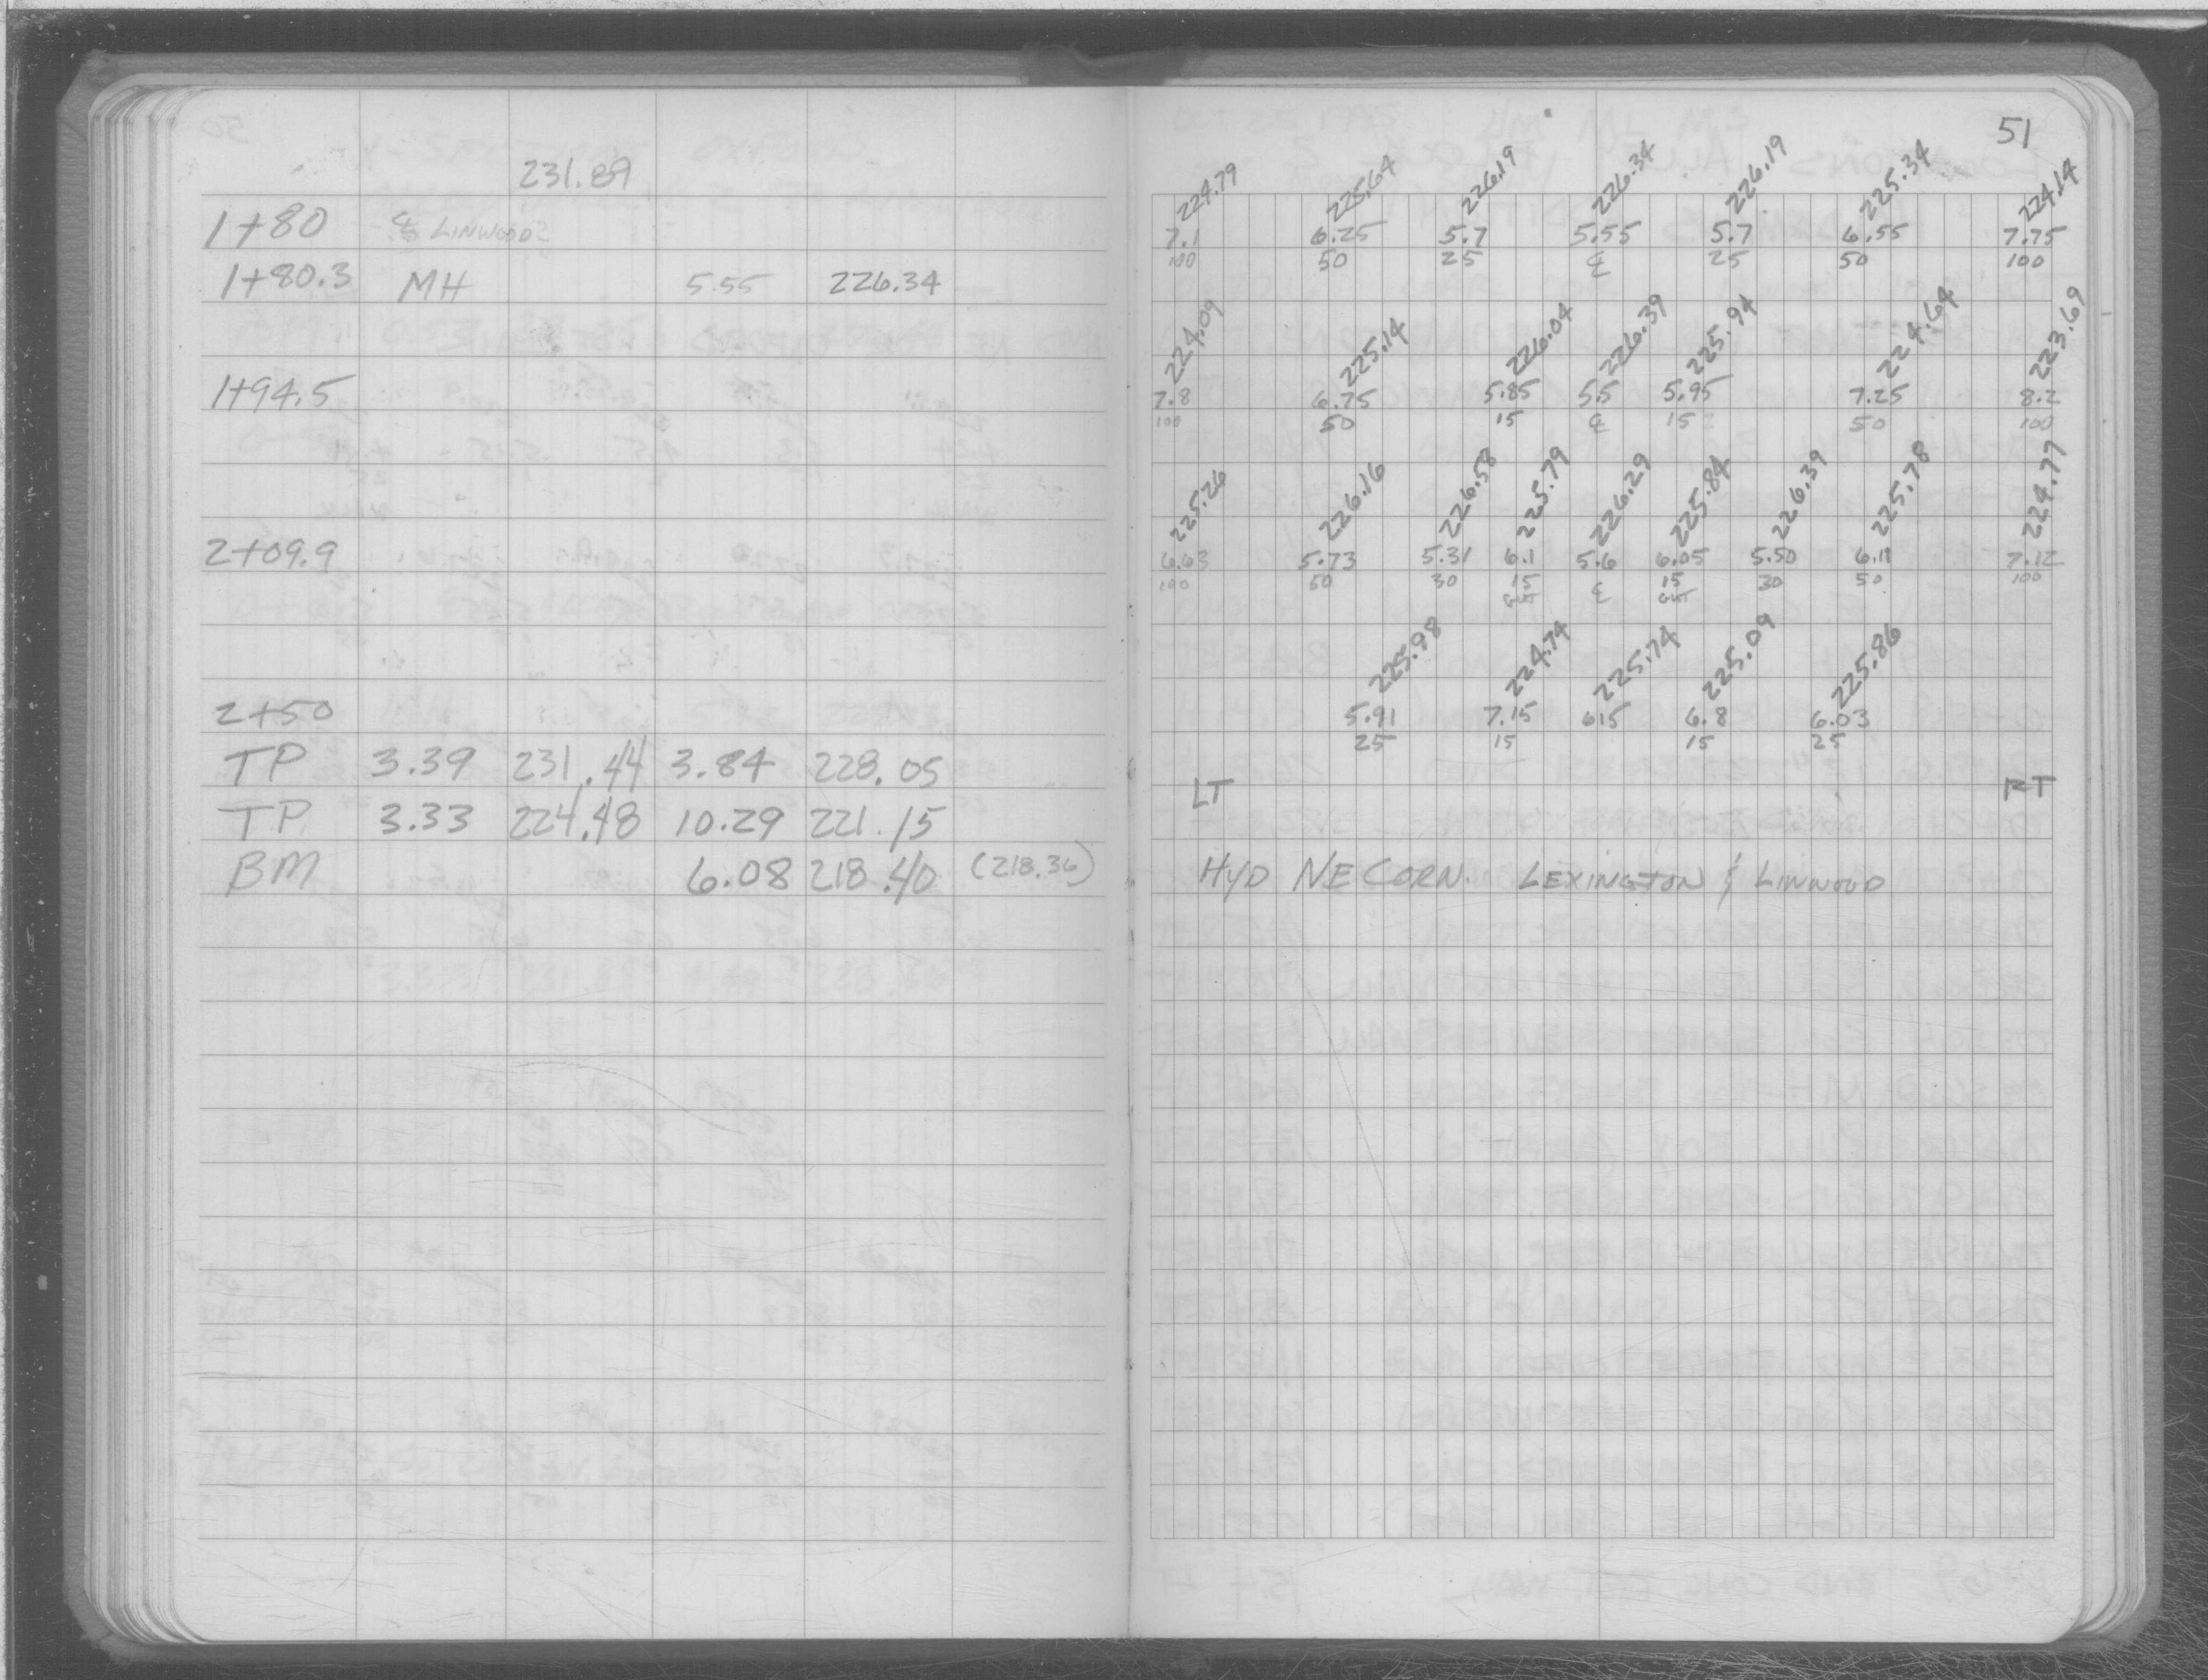 231.89
1+80 ℄ LINWOOD
1+80.3 MH 5.55 226.34
1+94.5
2+09.9
2+50
TP 3.39 231.44 3.84 228.05
TP 3.33 224.48 10.29 221.15
BM 6.08 218.40 (218.36)
51
224.79 225.64 226.19 226.34 226.19 225.34 224.14
7.1 6.25 5.7 5.55 5.7 6.55 7.75
100 50 25 ℄ 25 50 100
224.09 225.14 226.04 226.39 225.94 224.64 223.69
7.8 6.75 5.85 5.5 5.95 7.25 8.2
100 50 15 ℄ 15 50 100
225.26 226.16 226.58 225.79 226.29 225.84 226.39 225.78 224.77
6.63 5.73 5.31 6.1 5.6 6.05 5.50 6.11 7.12
100 50 30 15 ℄ 15 30 50 100
GUT GUT
225.98 224.74 225.74 225.09 225.86
5.91 7.15 615 6.8 6.03
25 15 15 25
LT RT
HYD NE CORN. LEXINGTON & LINWOOD